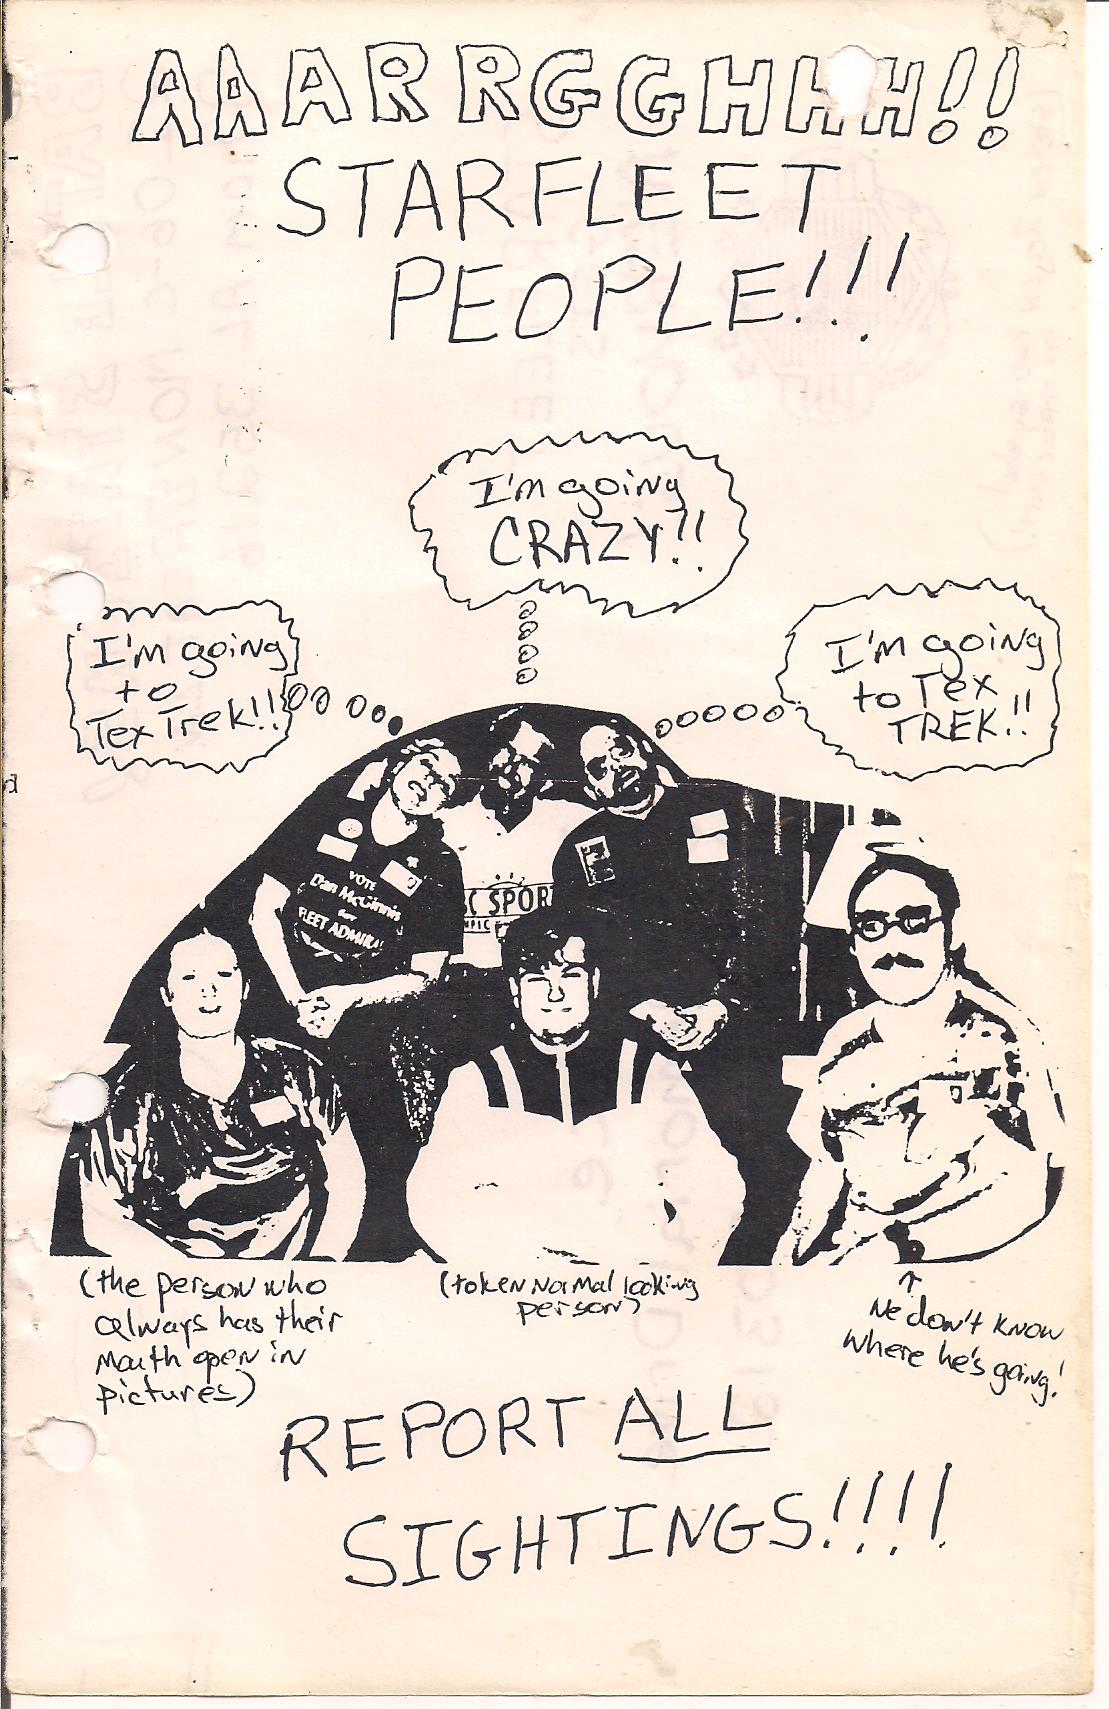 AAARRGGHHH!!
STARFLEET
PEOPLE!!!
I'm going
CRAZY!!
I'm going
to
Tex Trek!!
I'm going
to Tex
TREK!!
VOTE
Dan McGinnis
for
FLEET ADMIRAL
C SPOR
MPIC
(the person who
always has their
mouth open in
pictures)
(token normal looking
person)
We don't know
where he's going!
REPORT ALL
SIGHTINGS!!!!